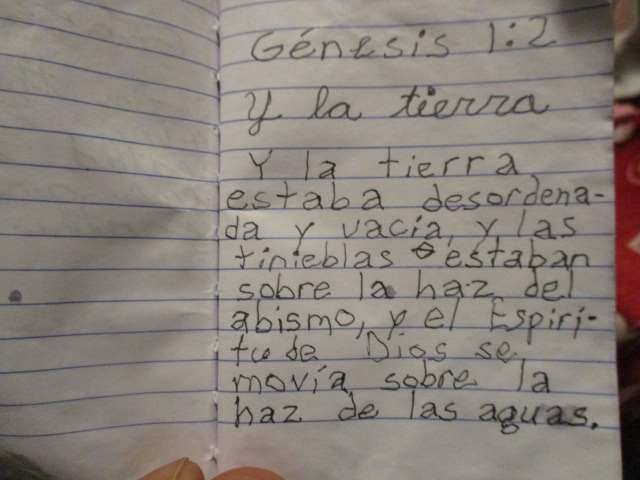 Génesis 1:2
Y la tierra
Y la tierra
estaba desordena-
da y vacía, y las
tinieblas estaban
sobre la haz del
abismo, y el Espiri-
tu de Dios se
movía sobre la
haz de las aguas.